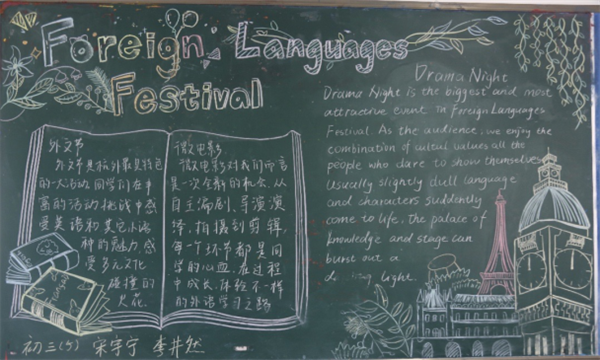 Foreign Languages
Festival
外文节
外文节是杭外最具特色
的一大活动,同学们在丰
富的活动挑战中感
受英语和其它小语
种的魅力,感
受多元文化
碰撞的
火花.
微电影
微电影对我们而言
是一次全新的机会.从
自主编剧,导演,演
绎,拍摄到剪辑,
每一个环节都是同
学的心血,在过程
中成长,体验不一样
的外语学习之路
Drama Night
Drama Night is the biggest and most
attractive event in Foreign Languages
Festival. As the audience, we enjoy the
combination of cultural values all the
people who dare to show themselves.
Usually slightly dull language
and characters suddenly
come to life. the palace of
knowledge and stage can
burst out a
light
初三(5) 宋宇宁 李井然